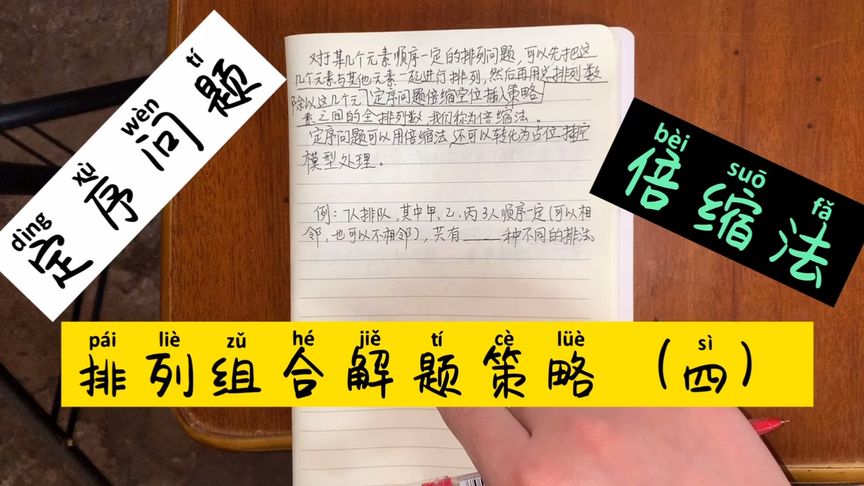 dìng xù wèn tí
定序问题
对于某几个元素顺序一定的排列问题，可以先把这
几个元素与其他元素一起进行排列，然后再用总排列数
除以这几个元 定序问题倍缩空位插入策略
素之间的全排列数，我们称为倍缩法。
定序问题可以用倍缩法，还可以转化为占位插空
模型处理。
例：7人排队，其中甲、乙、丙3人顺序一定(可以相
邻，也可以不相邻)，共有____种不同的排法。
bèi suō fǎ
倍缩法
pái liè zǔ hé jiě tí cè lüè sì
排列组合解题策略（四）